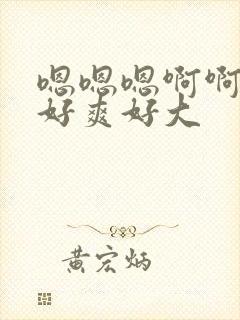 嗯嗯嗯啊啊
好爽好大
黄宏炳